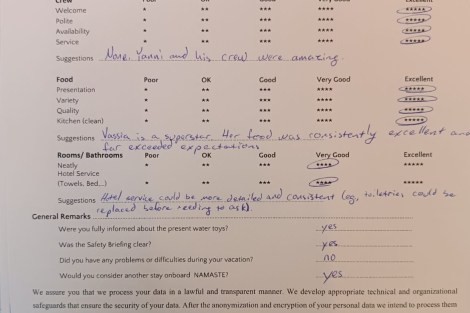 Crew Poor OK Good Very Good Excellent
Welcome * ** *** **** *****
Polite * ** *** **** *****
Availability * ** *** **** *****
Service * ** *** **** *****
Suggestions None. Yanni and his crew were amazing.
Food Poor OK Good Very Good Excellent
Presentation * ** *** **** *****
Variety * ** *** **** *****
Quality * ** *** **** *****
Kitchen (clean) * ** *** **** *****
Suggestions Vassia is a superstar. Her food was consistently excellent and
far exceeded expectations
Rooms/ Bathrooms Poor OK Good Very Good Excellent
Neatly * ** *** **** *****
Hotel Service
(Towels, Bed...) * ** *** **** *****
Suggestions Hotel service could be more detailed and consistent (eg, toiletries could be
replaced before needing to ask).
General Remarks
Were you fully informed about the present water toys? yes
Was the Safety Briefing clear? yes
Did you have any problems or difficulties during your vacation? no
Would you consider another stay onboard NAMASTE? yes
We assure you that we process your data in a lawful and transparent manner. We develop appropriate technical and organizational
safeguards that ensure the security of your data. After the anonymization and encryption of your personal data we intend to process them